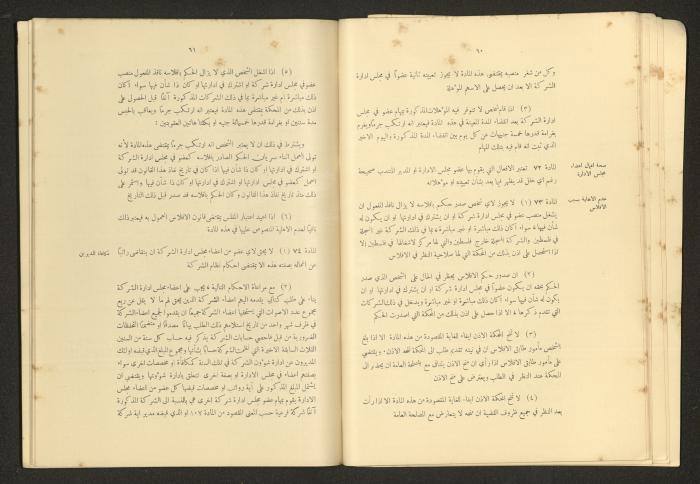 ٦٠
وكل من شغر منصبه بمقتضى هذه المادة لا يجوز تعيينه ثانية عضوًا في مجلس ادارة
الشركة الا بعد ان يحصل على الاسهم المؤهلة
(٣) اذا قام شخص لا تتوفر فيه المؤهلات المذكورة بمهام عضو في مجلس
ادارة الشركة بعد انقضاء المدة المعينة في هذه المادة فيعتبر انه ارتكب جرمًا ويغرم
بغرامة قدرها خمسة جنيهات عن كل يوم بين انقضاء المدة المذكورة واليوم الاخير
الذي ثبت انه قام فيه بتلك المهام
صحة افعال اعضاء
مجلس الادارة
المادة ٧٢ تعتبر الافعال التي يقوم بها عضو مجلس الادارة او المدير المنتدب صحيحة
رغم اي خلل قد يظهر فيما بعد بشأن تعيينه او مؤهلاته
عدم الاهلية بسبب
الافلاس
المادة ٧٣ (١) لا يجوز لاي شخص صدر حكم بافلاسه لا يزال نافذ المفعول ان
يشغل منصب عضو في مجلس ادارة شركة او ان يشترك في ادارتها او ان يكون له
شأن فيها سواء أكان ذلك مباشرة او غير مباشرة بما في ذلك الشركة غير المسجلة
في فلسطين والشركة المسجلة خارج فلسطين والتي لها مركز لاشغالها في فلسطين الا
اذا استحصل على اذن بذلك من المحكمة التي لها صلاحية النظر في الافلاس
(٢) ان صدور حكم الافلاس يحظر في الحال على الشخص الذي صدر
الحكم بحقه ان يكون عضوًا في مجلس ادارة شركة او ان يشترك في ادارتها او ان
يكون له شأن فيها سواء أكان ذلك مباشرة او غير مباشرة ويدخل في ذلك الشركات
التي تقدم ذكرها الا اذا حصل على اذن بذلك من المحكمة التي اصدرت الحكم
(٣) لا تمنح المحكمة الاذن ايفاء للغاية المقصودة من هذه المادة الا اذا بلغ
الشخص مأمور طابق الافلاس ان في نيته تقديم طلب الى المحكمة لمنحه الاذن ويقتضي
على مأمور طابق الافلاس اذا رأى ان منح الاذن يتنافى مع المصلحة العامة ان يحضر الى
المحكمة عند النظر في الطلب ويعترض على منح الاذن
(٤) لا تمنح المحكمة الاذن ايفاء للغاية المقصودة من هذه المادة الا اذا رأت
بعد النظر في جميع ظروف القضية ان منحه لا يتعارض مع المصلحة العامة
٦١
(٥) اذا اشغل الشخص الذي لا يزال الحكم بافلاسه نافذ المفعول منصب
عضو في مجلس ادارة شركة او اشترك في ادارتها او كان ذا شأن فيها سواء أكان
ذلك مباشرة ام غير مباشرة بما في ذلك الشركات المذكورة آنفًا قبل الحصول على
اذن بذلك من المحكمة بمقتضى هذه المادة فيعتبر انه ارتكب جرمًا ويعاقب بالحبس
مدة سنتين او بغرامة قدرها خمسمائة جنيه او بكلتا هاتين العقوبتين :
ويشترط في ذلك ان لا يعتبر الشخص انه ارتكب جرمًا بمقتضى هذه المادة لأنه
تولى العمل اثناء سريان الحكم الصادر بافلاسه كعضو في مجلس ادارة الشركة
او اشترك في ادارتها او كان ذا شأن فيها اذا كان في تاريخ نفاذ هذا القانون قد تولى
العمل كعضو في مجلس ادارتها او اشترك في ادارتها او كان ذا شأن فيها واستمر على
ذلك منذ تاريخ نفاذ هذا القانون وكان الحكم بافلاسه قد صدر قبل ذلك التاريخ
(٦) اذا اعيد اعتبار المفلس بمقتضى قانون الافلاس المعمول به فيعتبر ذلك
نافيًا لعدم الاهلية المنصوص عليها في هذه المادة
المادة ٧٤ (١) لا يحق لاي عضو من اعضاء مجلس ادارة الشركة ان يتقاضى راتبًا
عن اعماله بصفته هذه الا بمقتضى احكام نظام الشركة
(٢) مع مراعاة الاحكام التالية يجب على اعضاء مجلس ادارة الشركة
بناء على طلب كتابي يقدمه اليهم اعضاء الشركة الذين يحق لهم ما لا يقل عن ربع
مجموع عدد الاصوات التي يستحقها اعضاء الشركة جميعًا ان يقدموا لجميع اعضاء الشركة
في ظرف شهر واحد من تاريخ استلامهم ذلك الطلب بيانًا مصدقًا او متضمنًا التحفظات
الضرورية من قبل فاحصي حسابات الشركة يذكر فيه حساب كل سنة من السنين
الثلاث السابقة الاخيرة التي نظمت الشركة حسابًا بشأنها ومجموع المبلغ الذي قبضه اولئك
المديرون عن ادارة شؤون الشركة في تلك السنة كمكافأة او مخصصات اخرى سواء
بصفتهم اعضاء في مجلس الادارة او بصفة اخرى تتعلق بادارة شؤونها ويقتضي ان
يشتمل المبلغ المذكور على أية رواتب او مخصصات قبضها كل عضو من اعضاء مجلس
الادارة يقوم بمهام عضو مجلس ادارة شركة اخرى هي بالنسبة الى الشركة المذكورة
آنفًا شركة فرعية حسب المعنى المقصود من المادة ١٠٧ او الذي قبضه مدير اية شركة